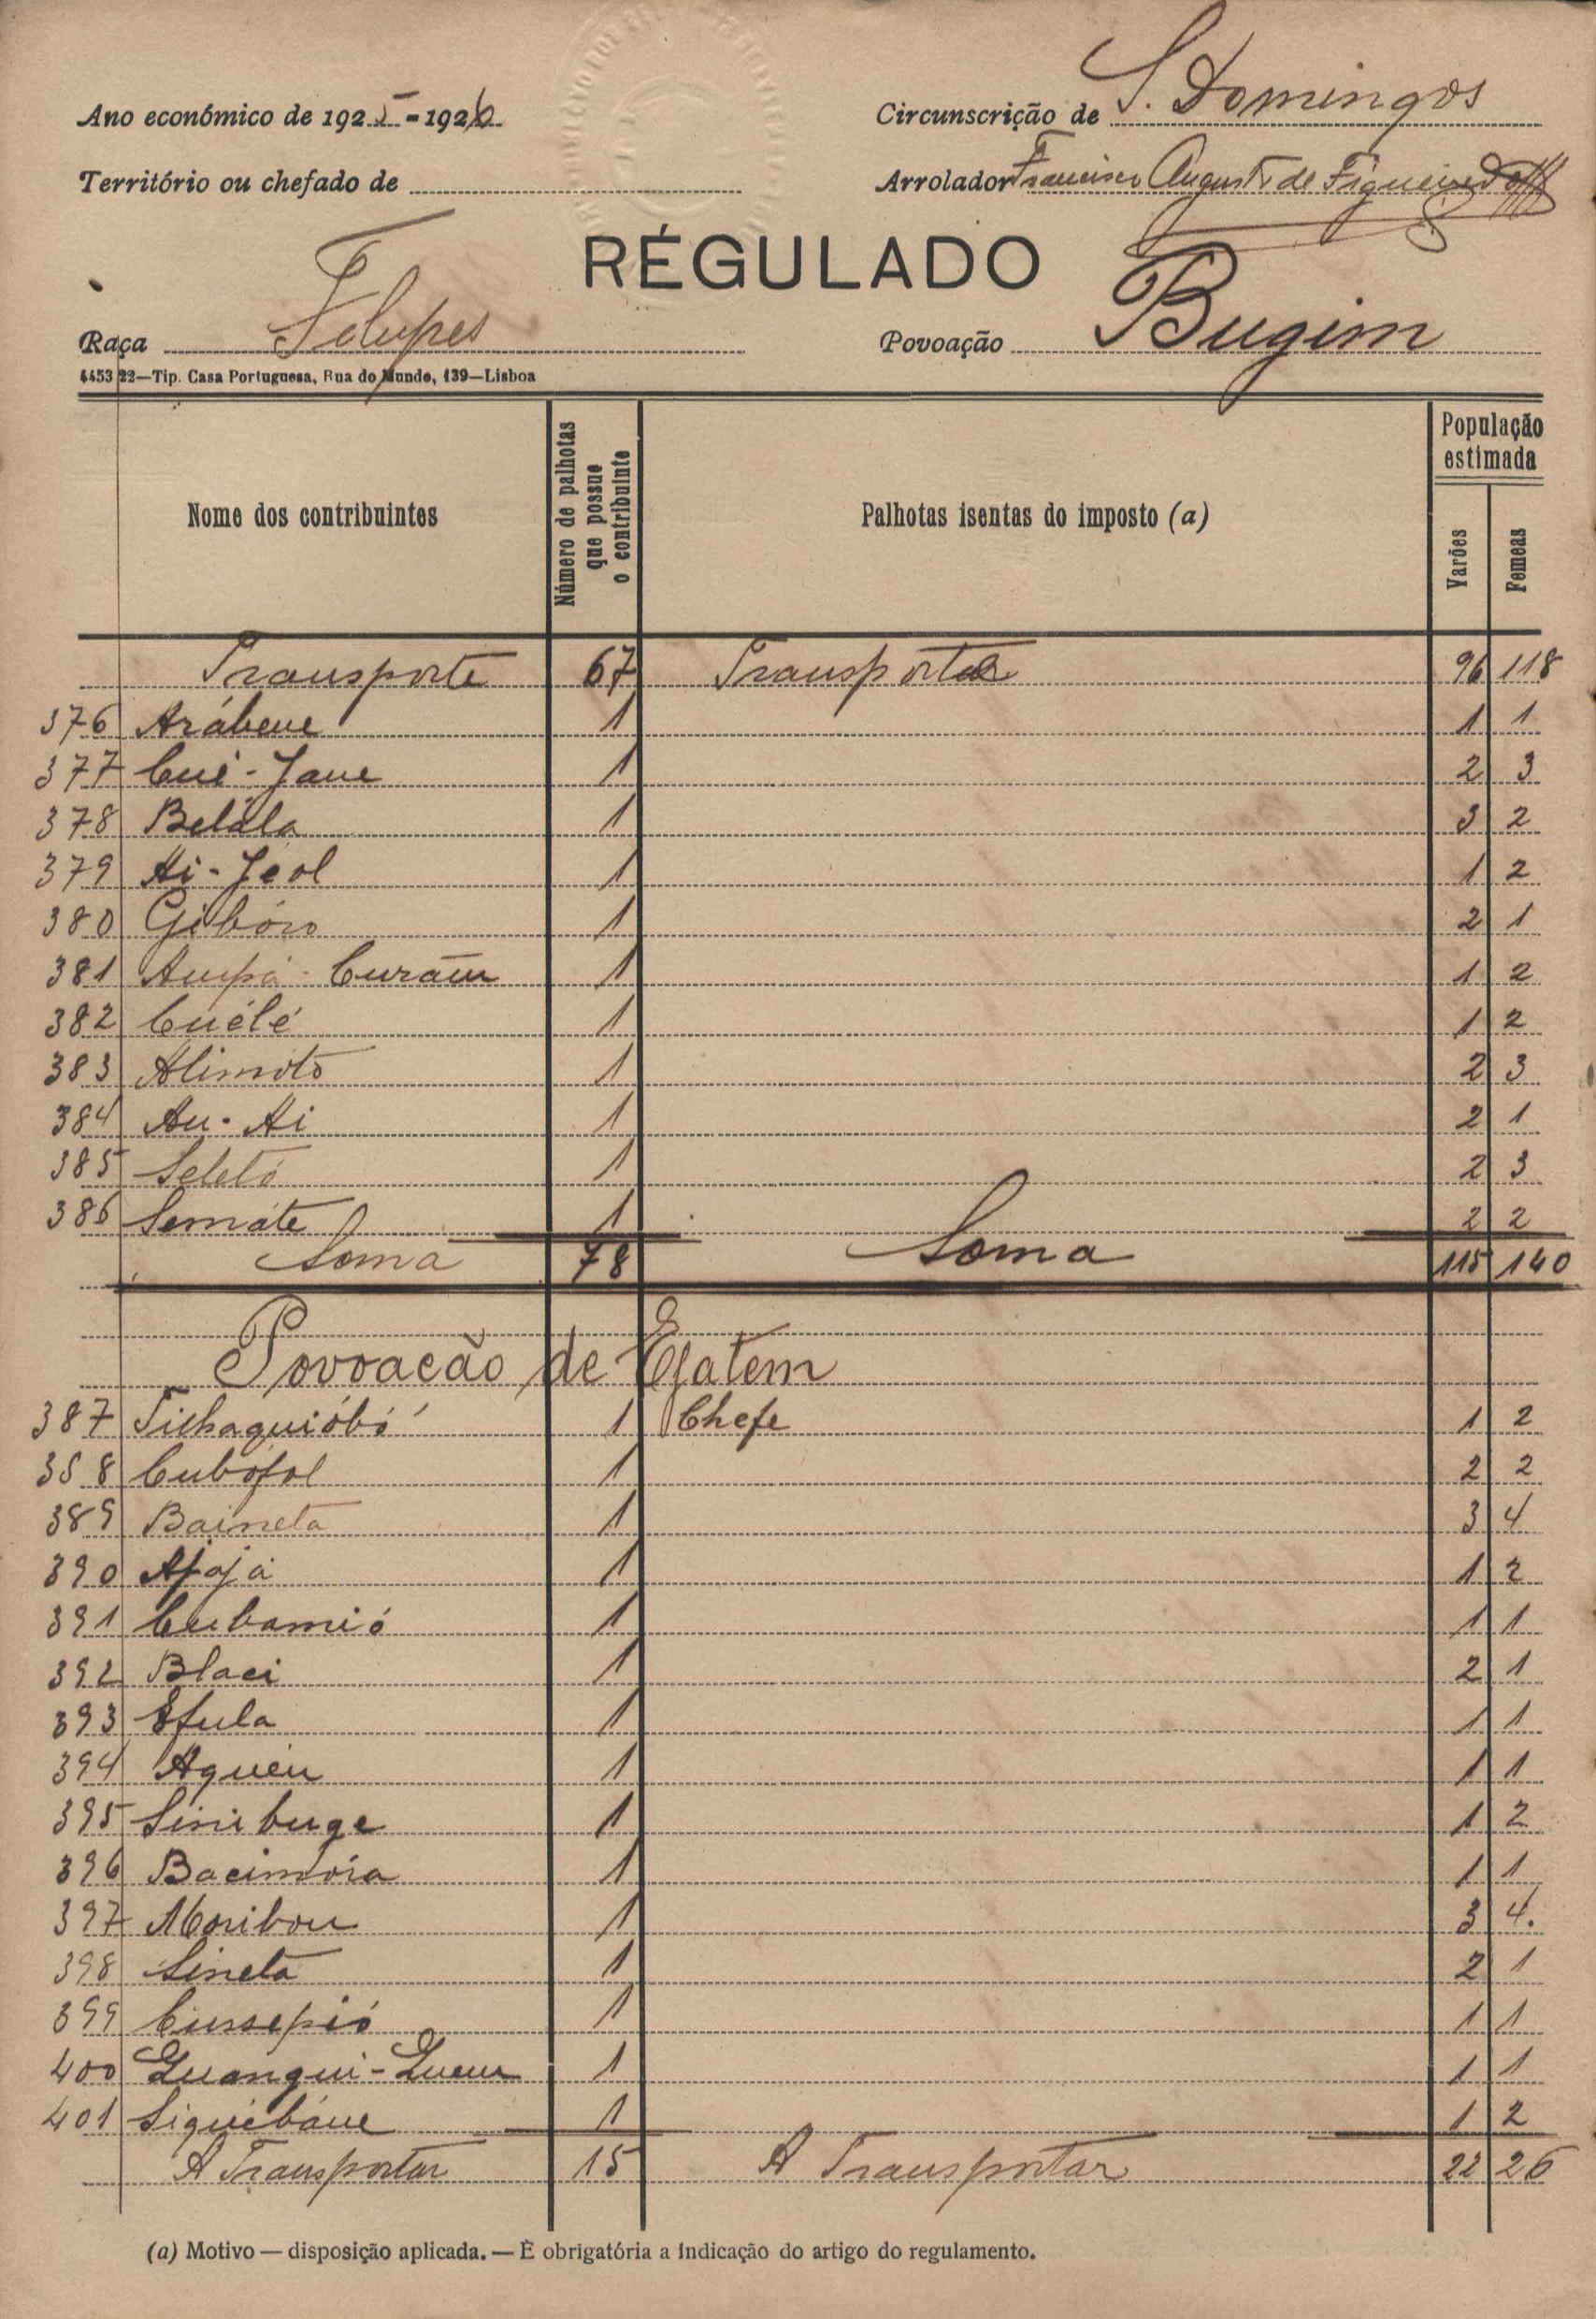 Ano económico de 1925-1926
Circunscrição de S. Domingos
Território ou chefado de
Arrolador Francisco Augusto de Figueiredo
RÉGULADO
Raça Felupes
Povoação Bugim
4453 22—Tip. Casa Portuguesa, Rua do Mundo, 139—Lisboa
Nome dos contribuintes
Número de palhotas que possue o contribuinte
Palhotas isentas do imposto (a)
População estimada
Varões
Femeas
Transporte 67 Transportar 96 118
376 Arábene 1 1 1
377 Cué-Jane 1 2 3
378 Belála 1 3 2
379 Ai-Jéol 1 1 2
380 Gibóro 1 2 1
381 Ampá-Curãm 1 1 2
382 Cuélé 1 1 2
383 Alimoto 1 2 3
384 Au-Ai 1 2 1
385 Seletó 1 2 3
386 Semáte 1 2 2
Soma 78 Soma 115 140
Povoacão de Ejatem
387 Silhaquióbó 1 Chefe 1 2
388 Cubófol 1 2 2
389 Baineta 1 3 4
390 Apajá 1 1 2
391 Cubamió 1 1 1
392 Blaci 1 2 1
393 Efula 1 1 1
394 Aquéu 1 1 1
395 Sinibuge 1 1 2
396 Bacimóra 1 1 1
397 Moribou 1 3 4.
398 Sineta 1 2 1
399 Cussepió 1 1 1
400 Quanqui-Queue 1 1 1
401 Siquébáne 1 1 2
A Transportar 15 A Transportar 22 26
(a) Motivo — disposição aplicada. — È obrigatória a indicação do artigo do regulamento.